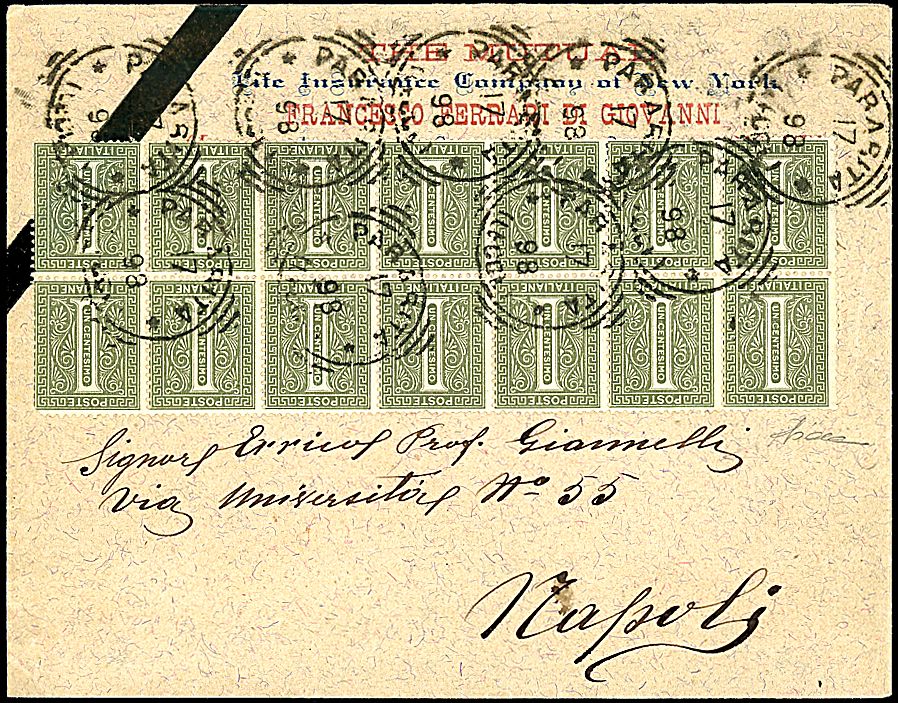 THE MUTUAL
Life Insurance Company of New York
FRANCESCO FERRARI DI GIOVANNI
PARABITA
17
98
POSTE ITALIANE
UN CENTESIMO
1
Signor Errico Prof. Giannelli
Via Università No 55
Napoli